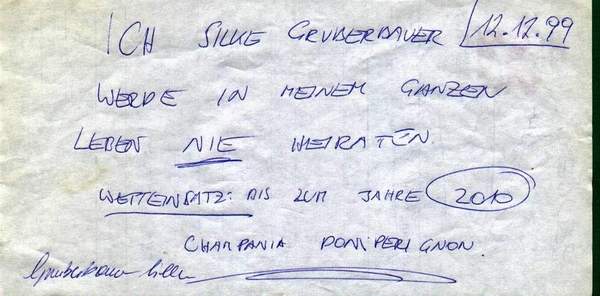 ICH SILKE GRUBERBAUER 12.12.99
WERDE IN MEINEM GANZEN
LEBEN NIE HEIRATEN.
WETTEINSATZ: BIS ZUM JAHRE 2010
CHAMPANIA DOM PERIGNON.
Gruberbauer Silke